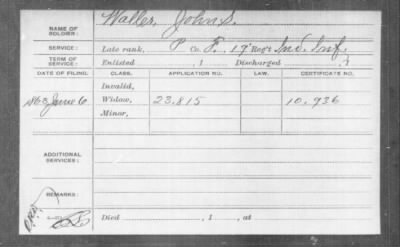 NAME OF SOLDIER: Waller, John S.
SERVICE: Late rank, P Co. F, 17' Reg't Ind. Inf.
TERM OF SERVICE: Enlisted , 1 Discharged , 1
DATE OF FILING. CLASS. APPLICATION NO. LAW. CERTIFICATE NO.
Invalid,
1863 June 6 Widow, 23.815 10.936
Minor,
ADDITIONAL SERVICES:
REMARKS:
Died , 1 , at